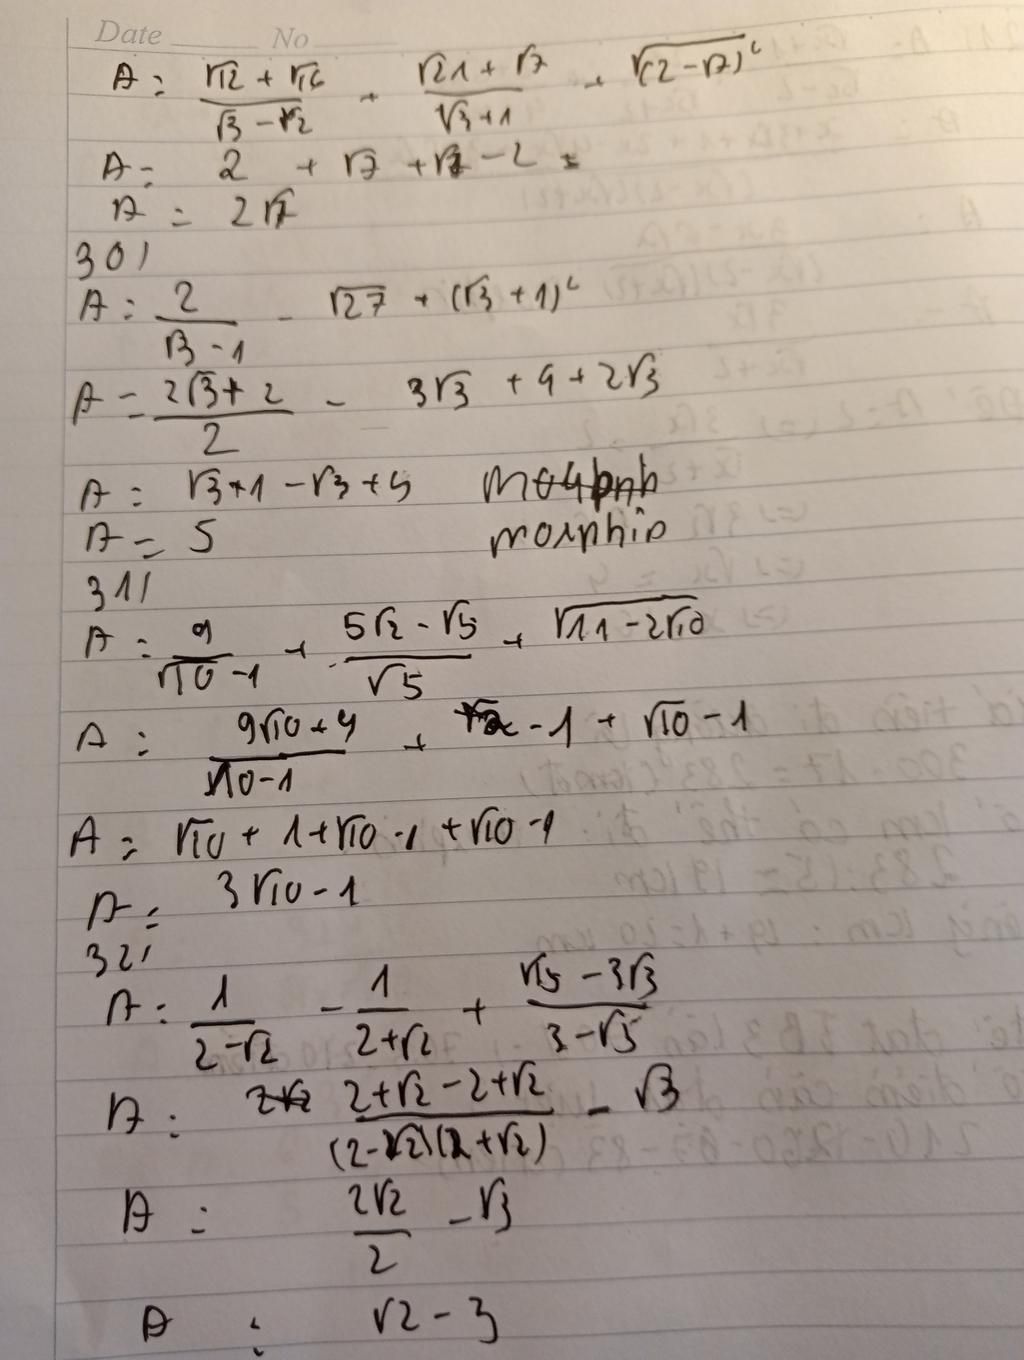 Date No
A = (√12 + √16)/(√3 - √2) + (√21 + √7)/(√3 + 1) + √(2 - √7)²
A = 2 + √7 + √7 - 2 =
A = 2√7
30)
A = 2/(√3 - 1) - √27 + (√3 + 1)²
A = (2√3 + 2)/2 - 3√3 + 4 + 2√3
A = √3 + 1 - √3 + 4
A = 5 morphin
31)
A = 9/(√10 - 1) + (5√2 - √5)/√5 + √(11 - 2√10)
A = (9√10 + 9)/(√10 - 1) + - 1 + √10 - 1
A = √10 + 1 + √10 - 1 + √10 - 1
A = 3√10 - 1
32)
A = 1/(2 - √2) - 1/(2 + √2) + (√15 - 3√3)/(3 - √5)
A = (2 + √2 - 2 + √2)/((2 - √2)(2 + √2)) - √3
A = 2√2/2 - √3
A = √2 - 3